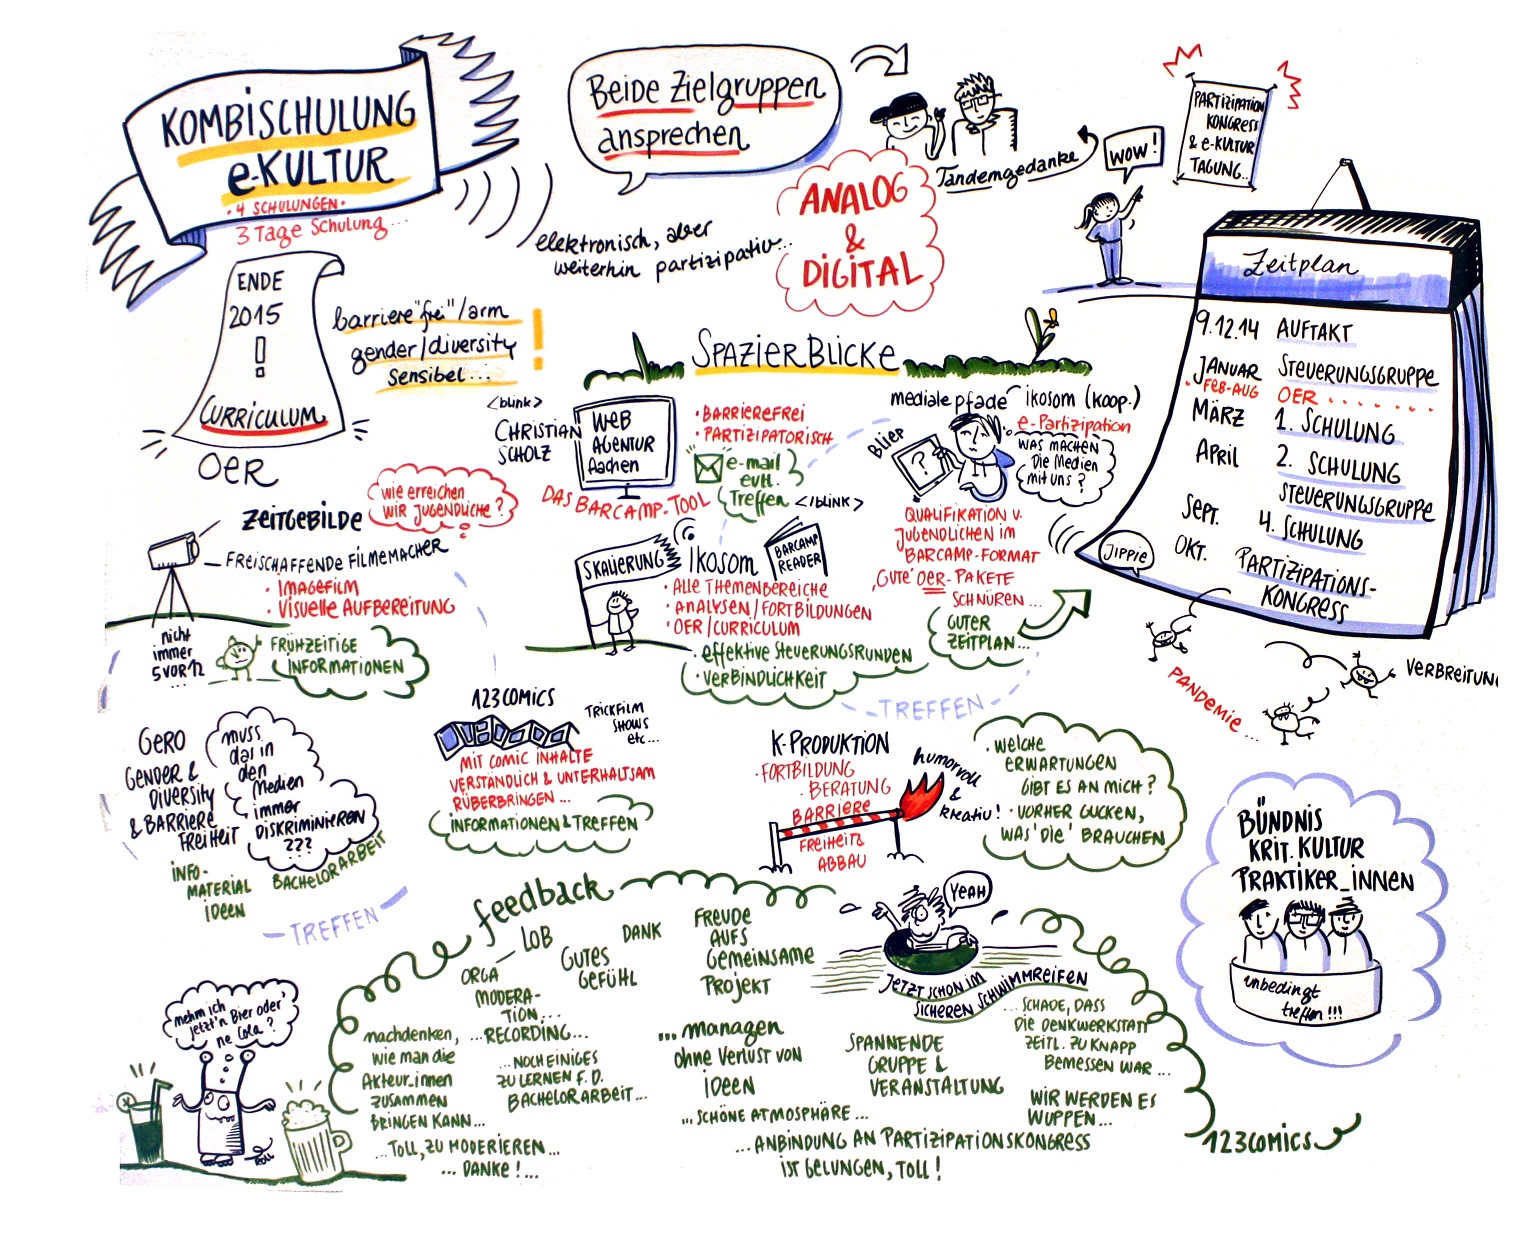 KOMBISCHULUNG
e-KULTUR
• 4 SCHULUNGEN •
3 Tage Schulung...
ENDE
2015
!
CURRICULUM
OER
barriere "frei"/arm
gender/diversity
sensibel...
!
Beide Zielgruppen
ansprechen
elektronisch, aber
weiterhin partizipativ...
ANALOG
&
DIGITAL
Tandemgedanke
WOW!
PARTIZIPATION
KONGRESS
& e-KULTUR
TAGUNG...
Zeitplan
9.12.14 AUFTAKT
JANUAR STEUERUNGSGRUPPE
• FEB-AUG OER . . . . . . .
MÄRZ 1. SCHULUNG
April 2. SCHULUNG
STEUERUNGSGRUPPE
Sept. 4. SCHULUNG
OKT. PARTIZIPATIONS-
KONGRESS
Jippie
PANDEMIE...
VERBREITUN
SPAZIERBLICKE
<blink>
CHRISTIAN
SCHOLZ
WEB
AGENTUR
Aachen
• BARRIEREFREI
• PARTIZIPATORISCH
e-mail
evtl.
Treffen
</blink>
DAS BARCAMP-TOOL
mediale pfade
ikosom (koop.)
e-Partizipation
Bliep
?
WAS MACHEN
Die Medien
mit uns?
QUALIFIKATION V.
JUGENDLICHEN IM
BARCAMP-FORMAT
'GUTE' OER-PAKETE
SCHNÜREN...
GUTER
ZEITPLAN...
ZEITGEBILDE
wie erreichen
WIR JUGENDLICHE?
FREISCHAFFENDE FILMEMACHER
• IMAGEFILM
• VISUELLE AUFBEREITUNG
nicht
immer
5 VOR 12
...
FRÜHZEITIGE
INFORMATIONEN
SKALIERUNG
Ikosom
BARCAMP
READER
• ALLE THEMENBEREICHE
• ANALYSEN/FORTBILDUNGEN
• OER/CURRICULUM
• effektive STEUERUNGSRUNDEN
• VERBINDLICHKEIT
TREFFEN
GERO
GENDER &
DIVERSITY
& BARRIERE
FREIHEIT
muss
das in
den
Medien
immer
DISKRIMINIEREN
???
INFO-
MATERIAL
IDEEN
BACHELORARBEIT
TREFFEN
123COMICS
TRICKFILM
SHOWS
etc...
MIT COMIC INHALTE
VERSTÄNDLICH & UNTERHALTSAM
RÜBERBRINGEN...
INFORMATIONEN & TREFFEN
K-PRODUKTION
• FORTBILDUNG
BERATUNG
BARRIERE
FREIHEIT &
ABBAU
humorvoll
&
kreativ!
• WELCHE
ERWARTUNGEN
GIBT ES AN MICH?
• VORHER GUCKEN,
WAS 'DIE' BRAUCHEN
BÜNDNIS
KRIT. KULTUR
PRAKTIKER_INNEN
unbedingt
treffen!!!
feedback
LOB
ORGA
MODERA-
TION...
...RECORDING...
GUTES
GEFÜHL
DANK
FREUDE
AUFS
GEMEINSAME
PROJEKT
YEAH
JETZT SCHON IM
SICHEREN SCHWIMMREIFEN
nachdenken,
wie man die
Akteur_innen
ZUSAMMEN
BRINGEN KANN...
...NOCH EINIGES
ZU LERNEN F. D.
BACHELORARBEIT...
...managen
ohne Verlust von
IDEEN
SPANNENDE
GRUPPE &
VERANSTALTUNG
...SCHADE, DASS
DIE DENKWERKSTATT
ZEITL. ZU KNAPP
BEMESSEN WAR...
WIR WERDEN ES
WUPPEN...
...SCHÖNE ATMOSPHÄRE...
...TOLL, ZU MODERIEREN...
... DANKE!...
...ANBINDUNG AN PARTIZIPATIONSKONGRESS
IST GELUNGEN, TOLL!
nehm ich
jetzt'n Bier oder
ne Cola?
123comics